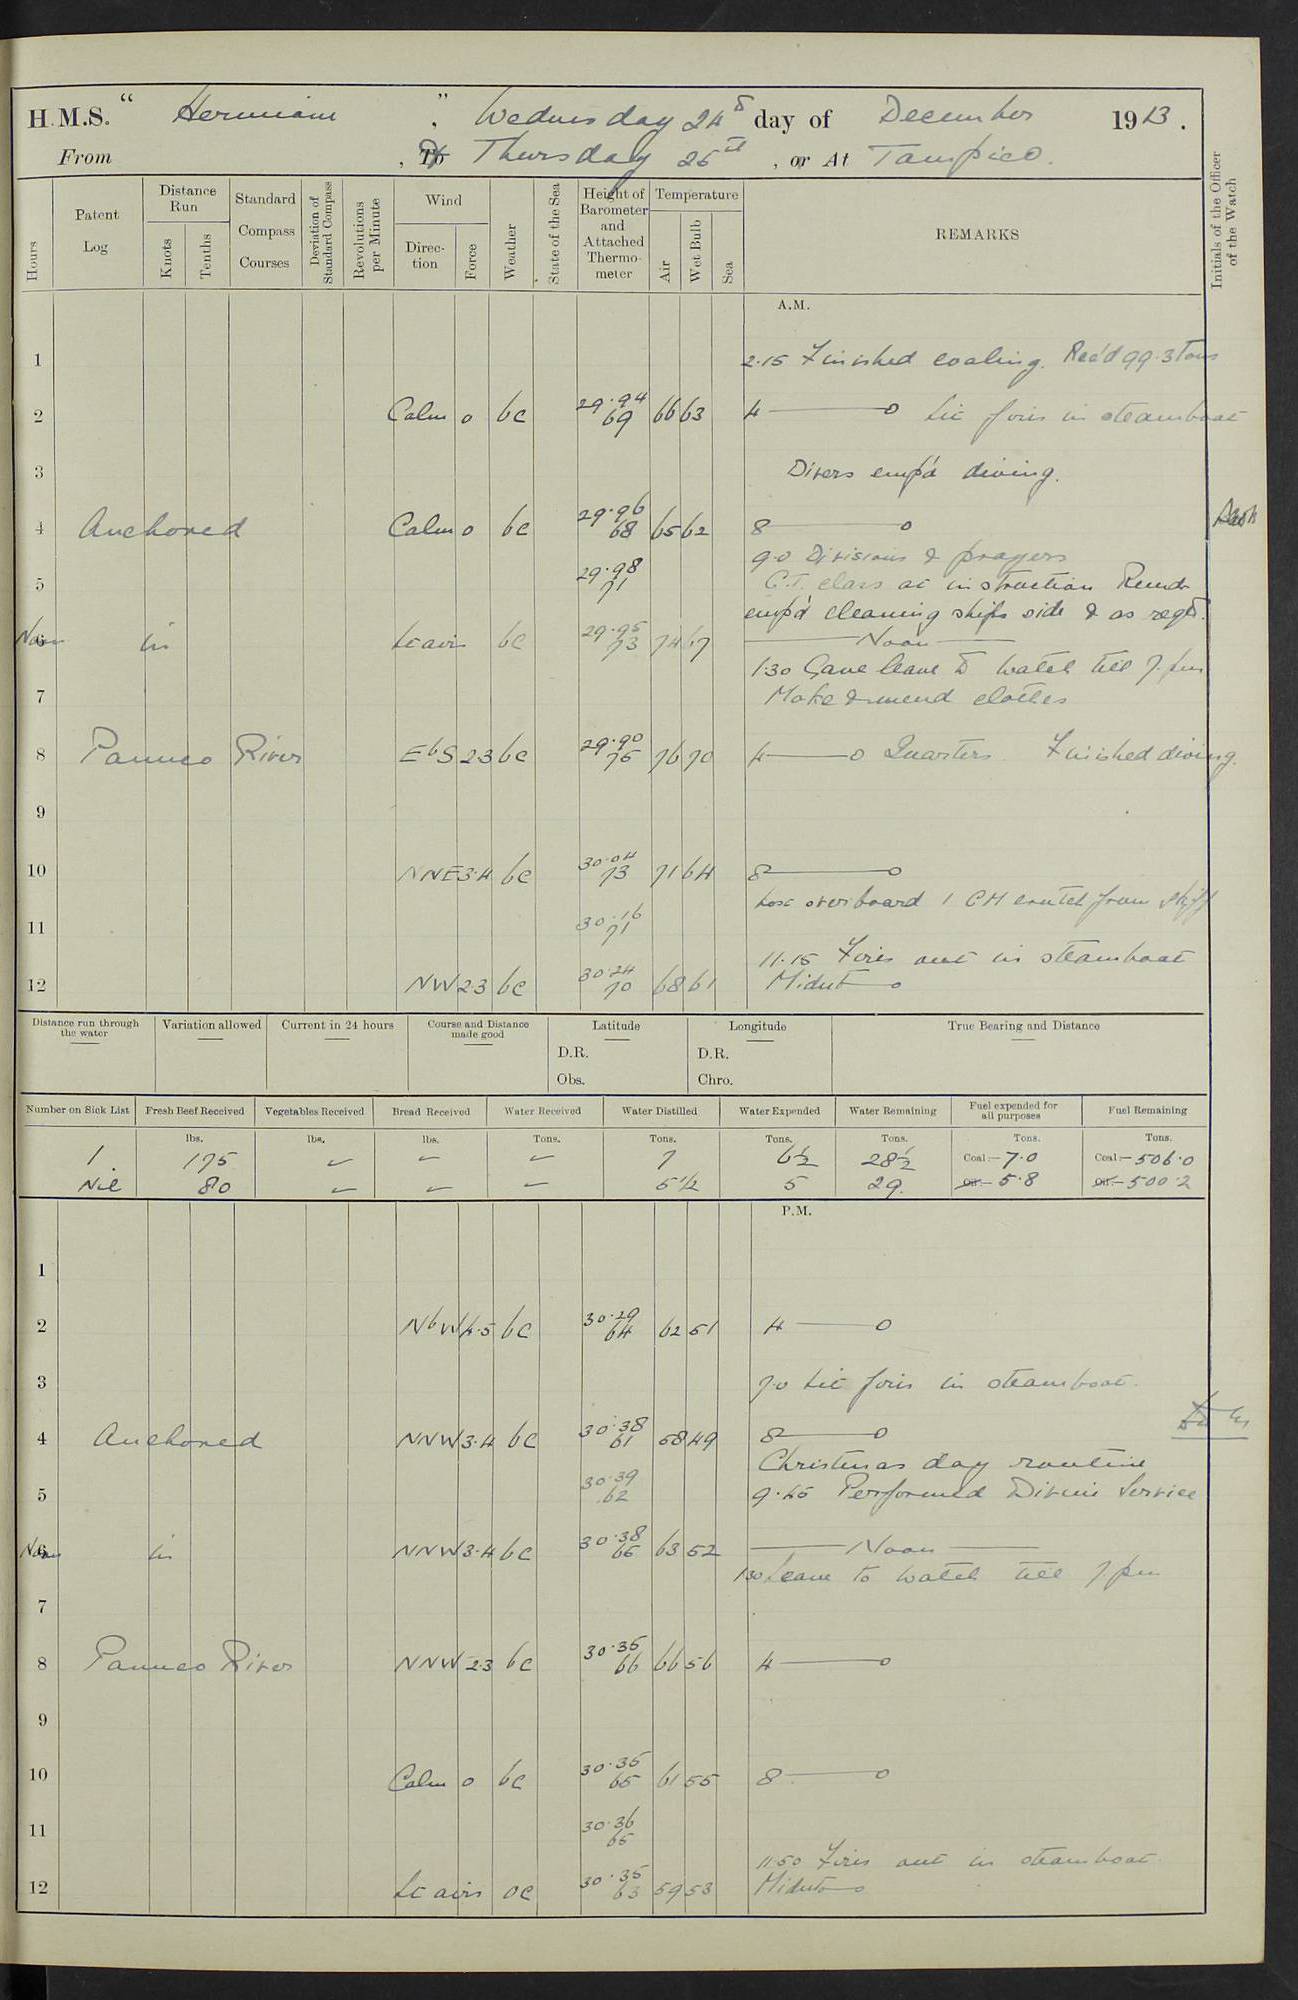 H.M.S. " Hermione ", Wednesday 24th day of December 1913.
From , To & Thursday 25th , or At Tampico.
Hours
Patent Log
Distance Run
Knots
Tenths
Standard Compass Courses
Deviation of Standard Compass
Revolutions per Minute
Wind
Direction
Force
Weather
State of the Sea
Height of Barometer and Attached Thermometer
Temperature
Air
Wet Bulb
Sea
REMARKS
Initials of the Officer of the Watch
A.M.
1 2.15 Finished coaling. Rec'd 99.3 Tons
2 Calm 0 bc 29.94 69 66 63 4 ——— o Lit fires in steamboat
3 Divers emp'd diving.
4 Anchored Calm 0 bc 29.96 68 65 62 8 ——— o
9.0 Divisions & prayers
5 29.98 71 G.T. class at instruction Remdr
emp'd cleaning ships side & as reqd.
Noon 6 in Lt airs bc 29.95 73 74 67 ——— Noon ———
1.30 Gave leave to watch till 7. pm
7 Make & mend clothes
8 Panuco River EbS 2.3 bc 29.90 75 76 70 4 ——— o Quarters Finished diving.
9
10 NNE 3.4 bc 30.04 73 71 64 8 ——— o
Lost overboard 1 CM crutch from skiff
11 30.16 71
11.15 Fires out in steamboat
12 NW 2.3 bc 30.24 70 68 61 Midnt — o
Distance run through the water
Variation allowed
Current in 24 hours
Course and Distance made good
Latitude
D.R.
Obs.
Longitude
D.R.
Chro.
True Bearing and Distance
Number on Sick List
Fresh Beef Received
Vegetables Received
Bread Received
Water Received
Water Distilled
Water Expended
Water Remaining
Fuel expended for all purposes
Fuel Remaining
lbs. lbs. lbs. Tons. Tons. Tons. Tons. Tons. Tons.
1. 175 ✓ ✓ ✓ 7 6½ 28½ Coal:— 7.0 Coal:— 506.0
Nil 80 ✓ ✓ ✓ 5½ 5 29. Oil:— 5.8 Oil:— 500.2
P.M.
1
2 NbW 4.5 bc 30.29 64 62 51 4 ——— o
3 7.0 Lit fires in steamboat.
4 Anchored NNW 3.4 bc 30.38 61 58 49 8 ——— o
Christmas day routine
5 30.39 62 9.45 Performed Divine Service
Noon 6 in NNW 3.4 bc 30.38 65 63 52 ——— Noon ———
1.30 Leave to watch till 7 pm
7
8 Panuco River NNW 2.3 bc 30.35 66 66 56 4 ——— o
9
10 Calm 0 bc 30.35 65 61 55 8 ——— o
11 30.36 65
11.50 Fires out in steamboat.
12 Lt airs oc 30.35 63 59 53 Midnt — o